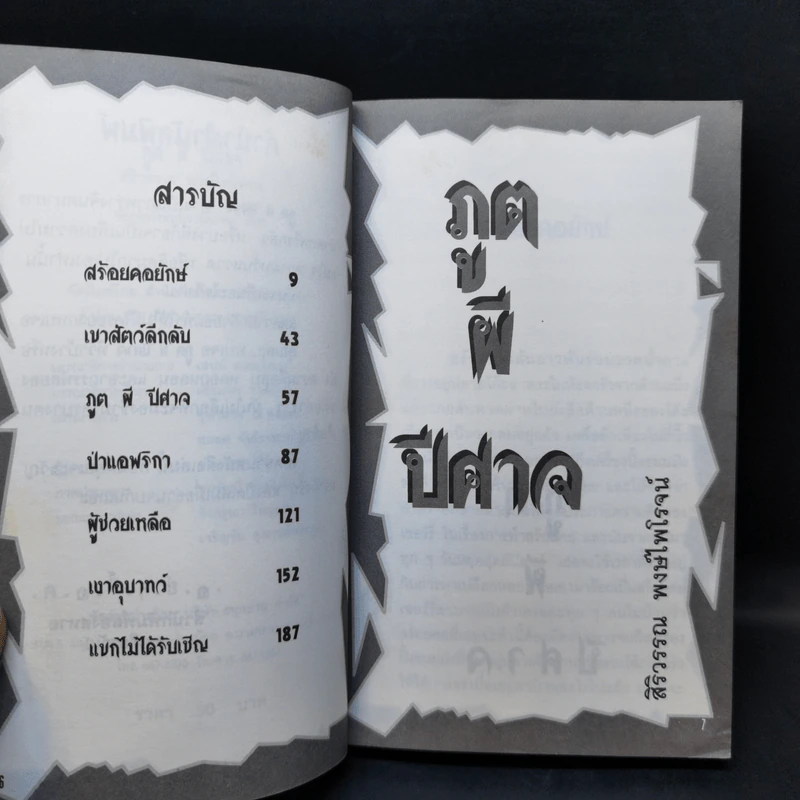 สารบัญ
สร้อยคอยักษ์ 9
เขาสัตว์ลึกลับ 43
ภูต ผี ปีศาจ 57
ป่าแอฟริกา 87
ผู้ช่วยเหลือ 121
เงาอุบาทว์ 152
แขกไม่ได้รับเชิญ 187
6
ภูต
ผี
ปีศาจ
สิริวรรณ พงษ์ไพโรจน์
7